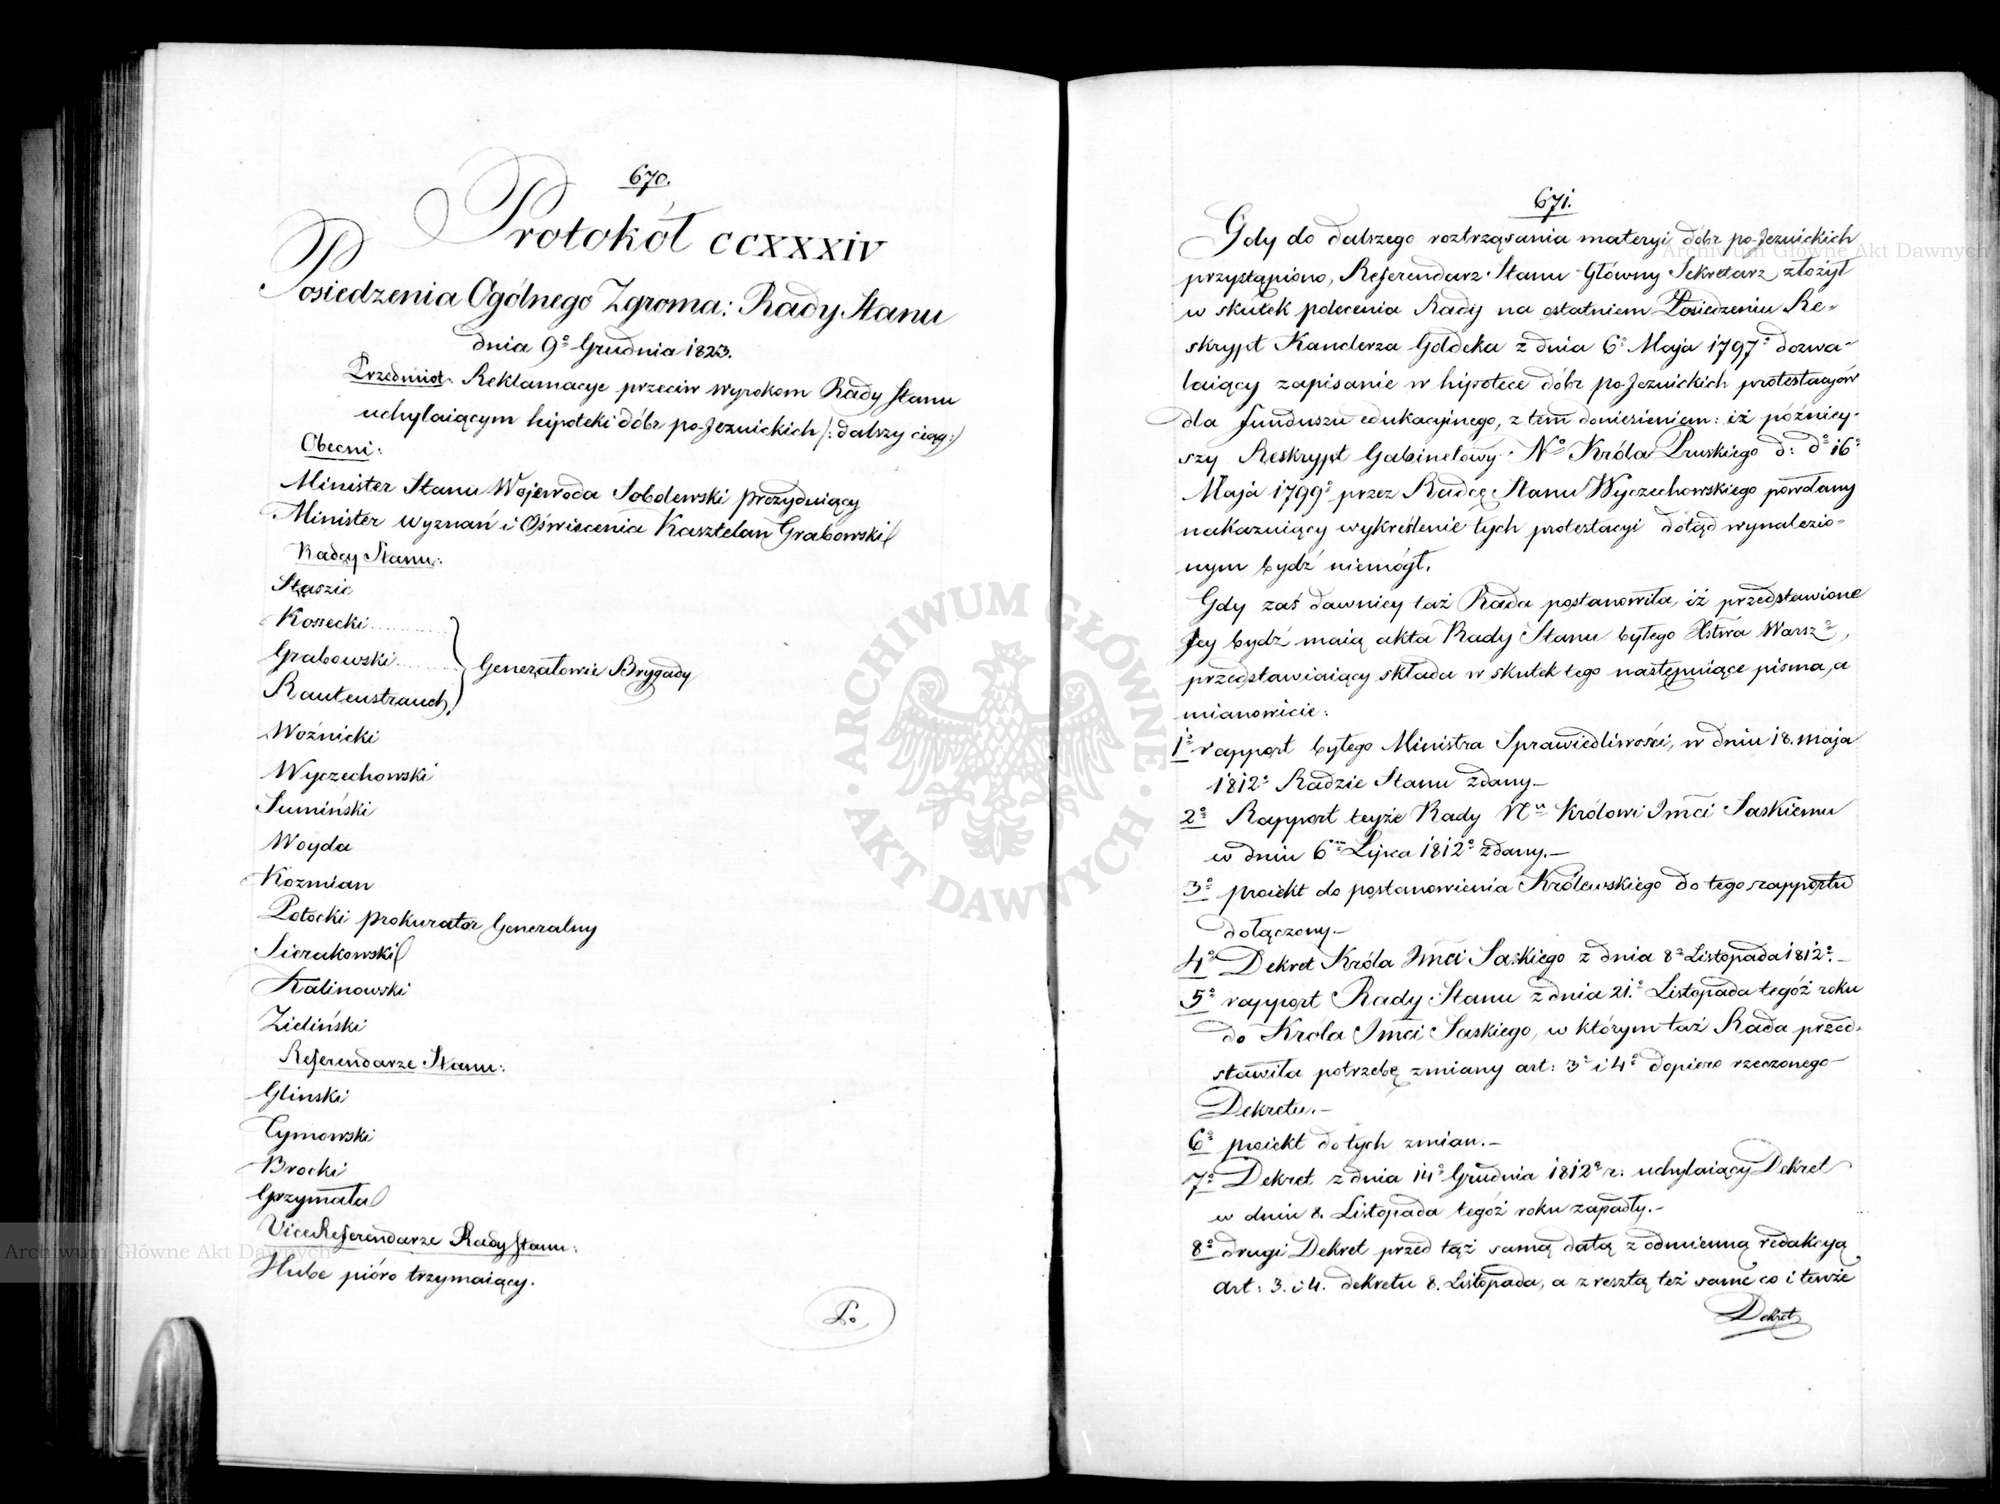 670.
Protokół CCXXXIV
Posiedzenia Ogólnego Zgroma: Rady Stanu
dnia 9º Grudnia 1823.
Przedmiot: Reklamacye przeciw wyrokom Rady Stanu
uchylaiącym hipoteki dóbr po-Jezuickich /: dalszy ciąg :/
Obecni:
Minister Stanu Wojewoda Sobolewski prezyduiący
Minister Wyznań i Oświecenia Kasztelan Grabowski
Radcy Stanu:
Staszic
Kossecki
Grabowski
Rautenstrauch
Generałowie Brygady
Woźnicki
Wyczechowski
Sumiński
Woyda
Kozmian
Potocki prokurator Generalny
Sierakowski
Kalinowski
Zieliński
Referendarze Stanu:
Glinski
Tymowski
Brocki
Grzymała
ViceReferendarze Rady Stanu:
Hube pióro trzymaiący.
671.
Gdy do dalszego roztrząsania materyi dóbr po-Jezuickich
przystąpiono, Referendarz Stanu Główny Sekretarz złożył
w skutek polecenia Rady na ostatniem Posiedzeniu Re-
skrypt Kanclerza Goldbeka z dnia 6º Maja 1797º dozwa-
laiący zapisanie w hipotece dóbr po-Jezuickich protestacyów
dla funduszu edukacyjnego, z tem doniesieniem: iż późniey-
szy Reskrypt Gabinetowy Nº Króla Pruskiego d: dº 16º
Maja 1799º przez Radcę Stanu Wyczechowskiego powołany
nakazuiący wykreślenie tych protestacyi dotąd wynalezio-
nym bydź niemógł.
Gdy zaś dawniey taż Rada postanowiła, iż przedstawione
Jey bydź maią akta Rady Stanu byłego Xstwa Warszº,
przedstawiaiący składa w skutek tego następuiące pisma, a
mianowicie:
1º rapport byłego Ministra Sprawiedliwości, w dniu 18. maja
1812º Radzie Stanu zdany_
2º Rapport teyże Rady Nu Królowi Jmci Saskiemu
w dniu 6m Lipca 1812º zdany._
3º proiekt do postanowienia Królewskiego do tego rapportu
dołączony._
4º Dekret Króla Jmci Saskiego z dnia 8º Listopada 1812º._
5º rapport Rady Stanu z dnia 21º Listopada tegóż roku
do Króla Jmci Saskiego, w którym taż Rada przed-
stawiła potrzebę zmiany art: 3º i 4º dopiero rzeczonego
Dekretu._
6º proiekt do tych zmian._
7º Dekret z dnia 14º Grudnia 1812º r: uchylaiący Dekret
w dniu 8. Listopada tegóż roku zapadły._
8º drugi Dekret przed tąż samą datą z odmienną redakcyą
art: 3. i 4. dekretu 8. Listopada, a zresztą też same co i tenże
Dekret
Archiwum Główne Akt Dawnych
Archiwum Główne Akt Dawnych
ARCHIWUM GŁÓWNE
AKT DAWNYCH